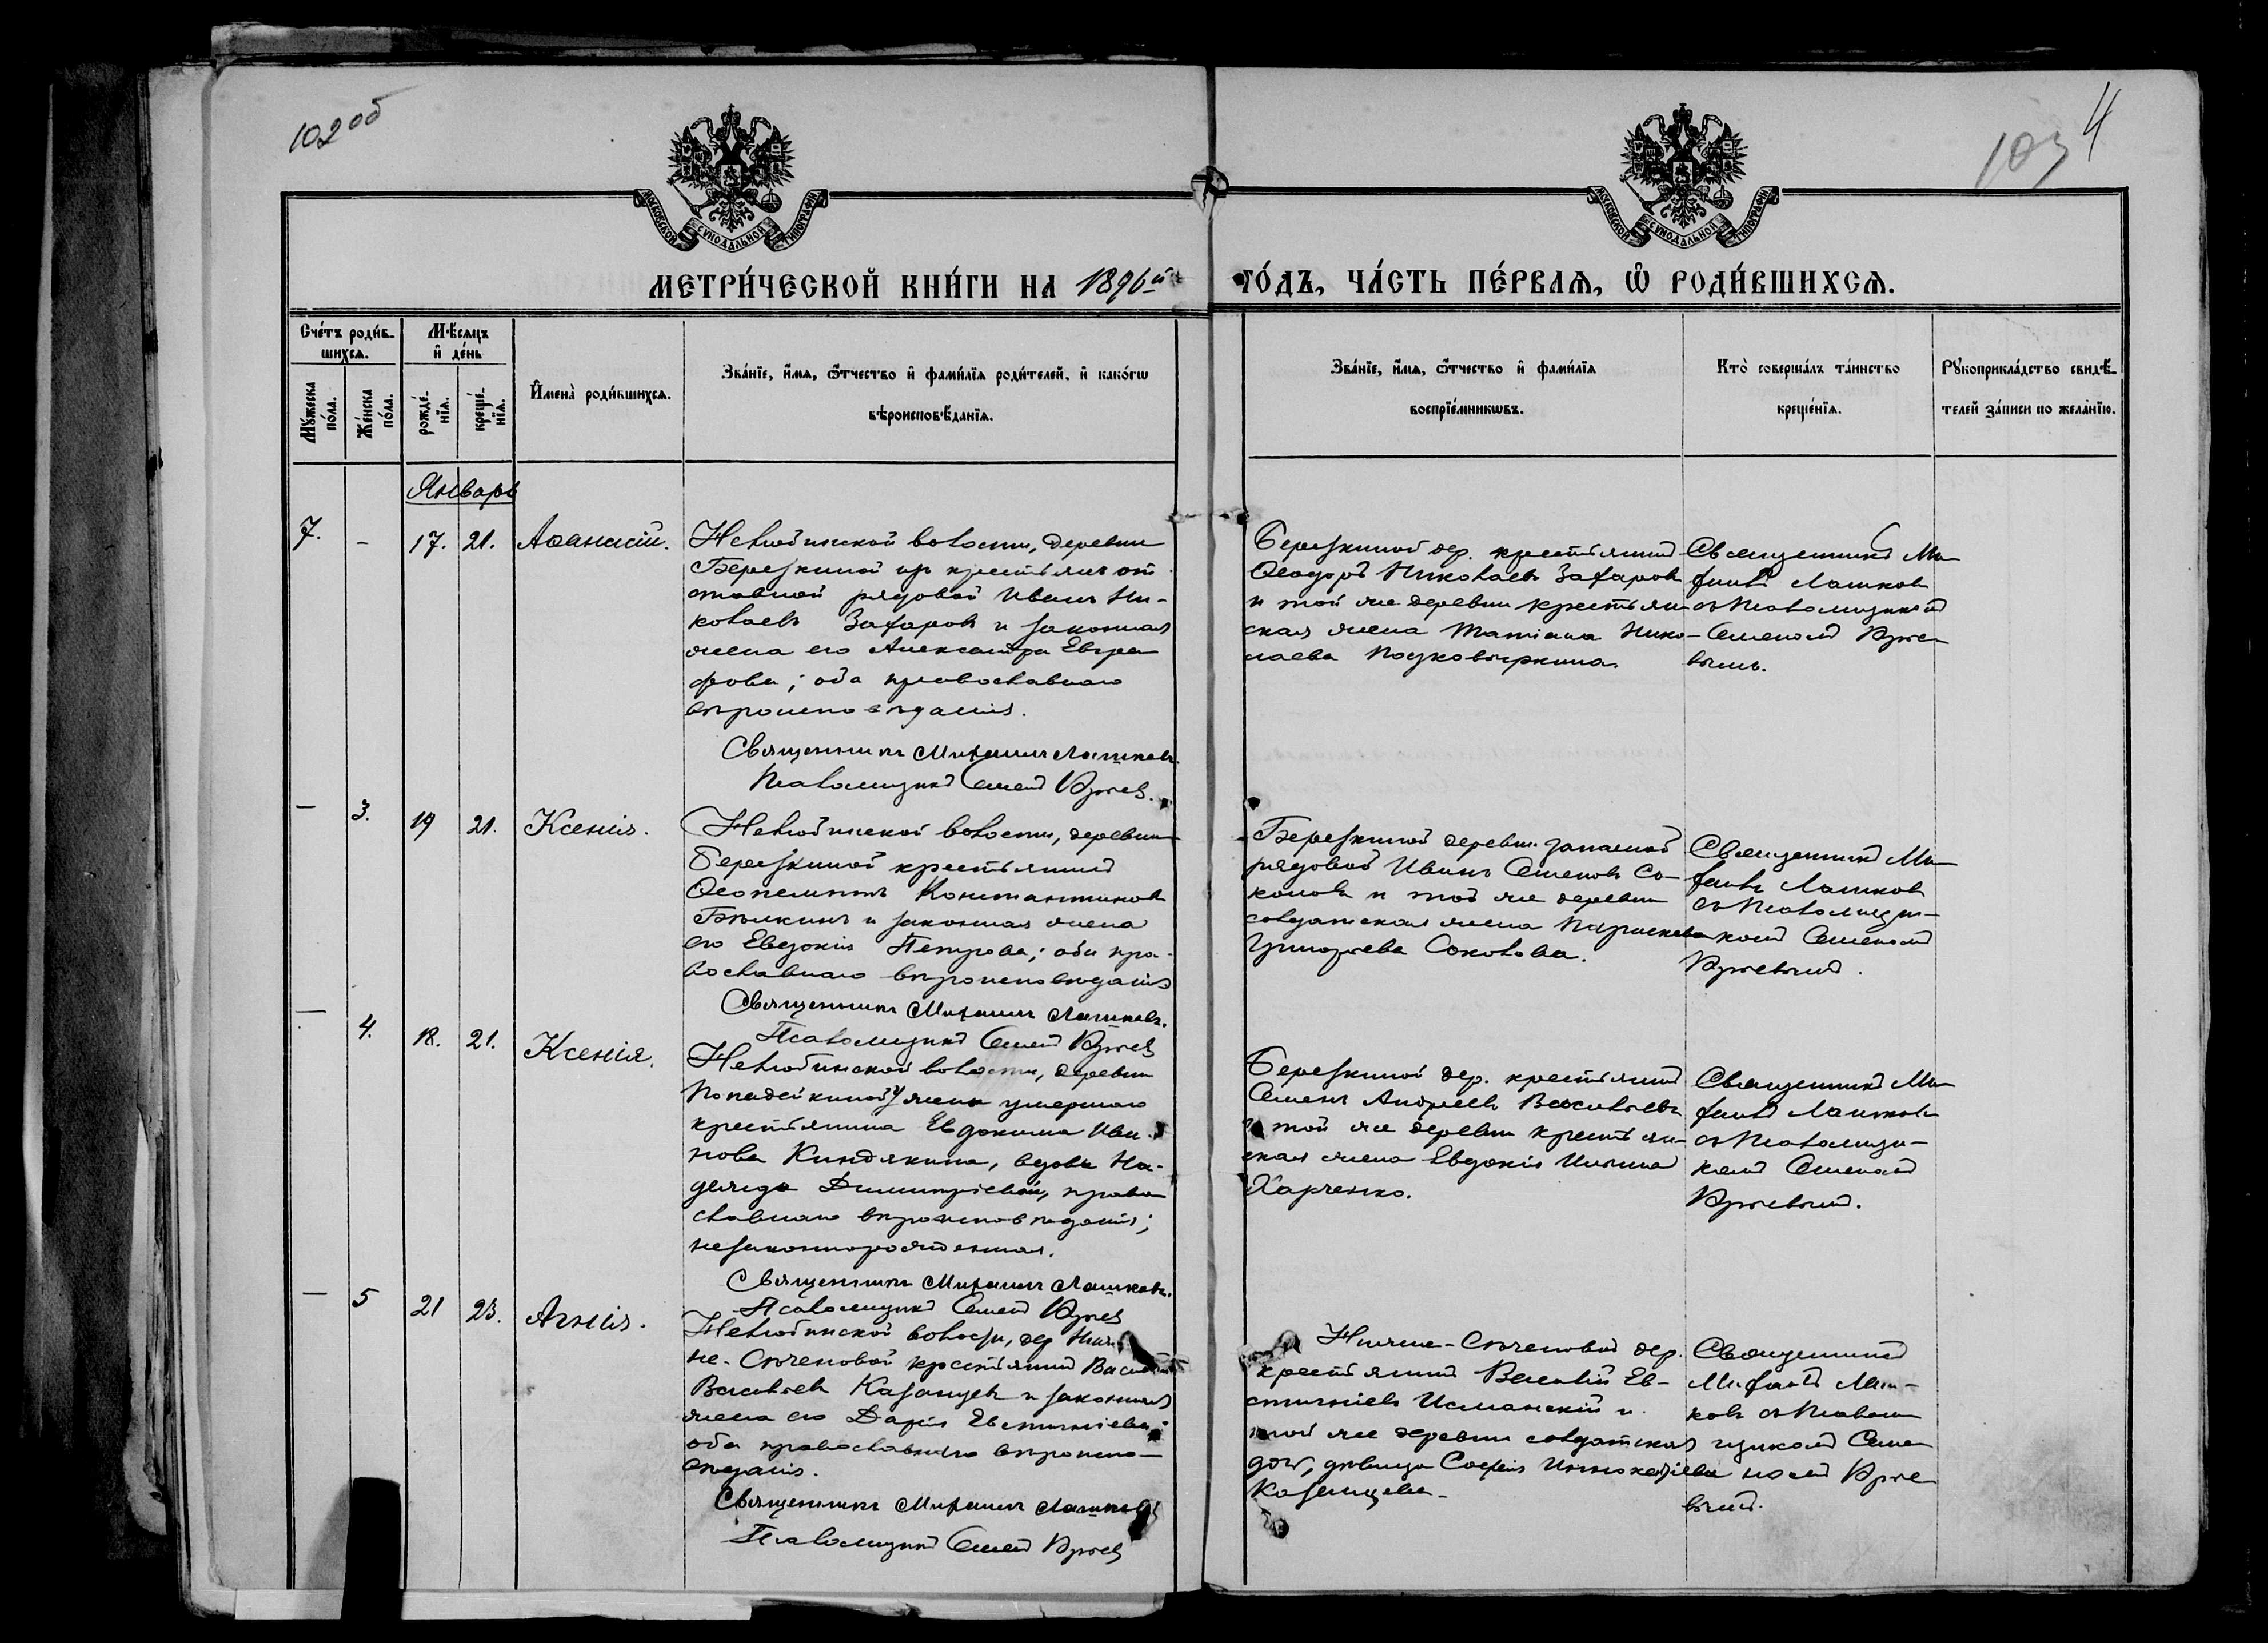 102 об
103 4
МОСКОВСКОЙ СѴНОДАЛЬНОЙ ТИПОГРАФІИ
МОСКОВСКОЙ СѴНОДАЛЬНОЙ ТИПОГРАФІИ
МЕТРИ́ЧЕСКОЙ КНИ́ГИ НА 1896й ГО́ДЪ, ЧА́СТЬ ПЕ́РВАѦ, Ѡ҆ РОДИ́ВШИХСѦ.
Сче́тъ роди́в-
шихсѧ.
Мꙋ́жеска по́ла.
Же́нска по́ла.
Мѣ́сѧцъ
и҆ де́нь
рожде́-
нїѧ.
креще́-
нїѧ.
И҆мена̀ роди́вшихсѧ.
Зва́нїе, и҆́мѧ, ѻ҆́тчество и҆ фами́лїѧ роди́телей, и҆ како́гѡ
вѣроисповѣ́данїѧ.
Зва́нїе, и҆́мѧ, ѻ҆́тчество и҆ фами́лїѧ
воспрїе́мникѡвъ.
Кто̀ соверша́лъ та́инство
креще́нїѧ.
Рꙋкоприкла́дство свидѣ́-
телей за́писи по жела́нїю.
Январь
7. - 17. 21. Аѳанасій.
Нелюбинской волости, деревни
Березкиной из крестьянъ от
ставной рядовой Иванъ Ни-
колаевъ Захаровъ и законная
жена его Александра Евгра
фова; оба православнаго
вѣроисповѣданія.
Священникъ Михаилъ Лашковъ.
Псаломщикъ Семенъ
Березкиной дер. крестьянинъ
Ѳеодоръ Николаевъ Захаровъ
и той же деревни крестьян
ская жена Татіана Нико-
лаева Подковыркина.
Священникъ Ми
хаилъ Лашковъ
съ Псаломщикомъ
Семеномъ
- 3. 19 21. Ксенія.
Нелюбинской волости, деревни
Березкиной крестьянинъ
Ѳеопемптъ Константиновъ
Бѣлкинъ и законная жена
его Евдокія Петрова; оба пра-
вославнаго вѣроисповѣданія
Священникъ Михаилъ Лашковъ.
Псаломщикъ Семенъ
Березкиной деревни запасной
рядовой Иванъ Семеновъ Со-
коловъ и той же деревни
солдатская жена Параскева
Григорьева Соколова.
Священникъ Ми
хаилъ Лашковъ
съ Псаломщи-
комъ Семеномъ
- 4. 18. 21. Ксенія.
Нелюбинской волости, деревни
Попадейкиной у жены умершаго
крестьянина Евдокима Ива-
нова Киндякина, вдовы На-
дежды Димитріевой, право
славнаго вѣроисповѣданія;
незаконнорожденная.
Священникъ Михаилъ Лашковъ.
Псаломщикъ Семенъ
Березкиной дер. крестьянинъ
Семенъ Андреевъ Васильевъ
и той же деревни крестьян-
ская жена Евдокія Ильина
Харченко.
Священникъ Ми
хаилъ Лашковъ
съ Псаломщи-
комъ Семеномъ
- 5 21 23. Агнія.
Нелюбинской волости, дер Ниж
не-Сѣченовой крестьянинъ Василій
Васильевъ Казанцевъ и законная
жена его Дарія Евстигніева;
оба православнаго вѣроиспо-
вѣданія.
Священникъ Михаилъ Лашковъ
Псаломщикъ Семенъ
Нижне-Сѣченовой дер.
крестьянинъ Василій Ев-
стигніевъ и
той же деревни солдатская
дочь, дѣвица Софія Иннокентіева
Казанцева.
Священникъ
Михаилъ Лаш-
ковъ съ Псалом
щикомъ Семе
номъ